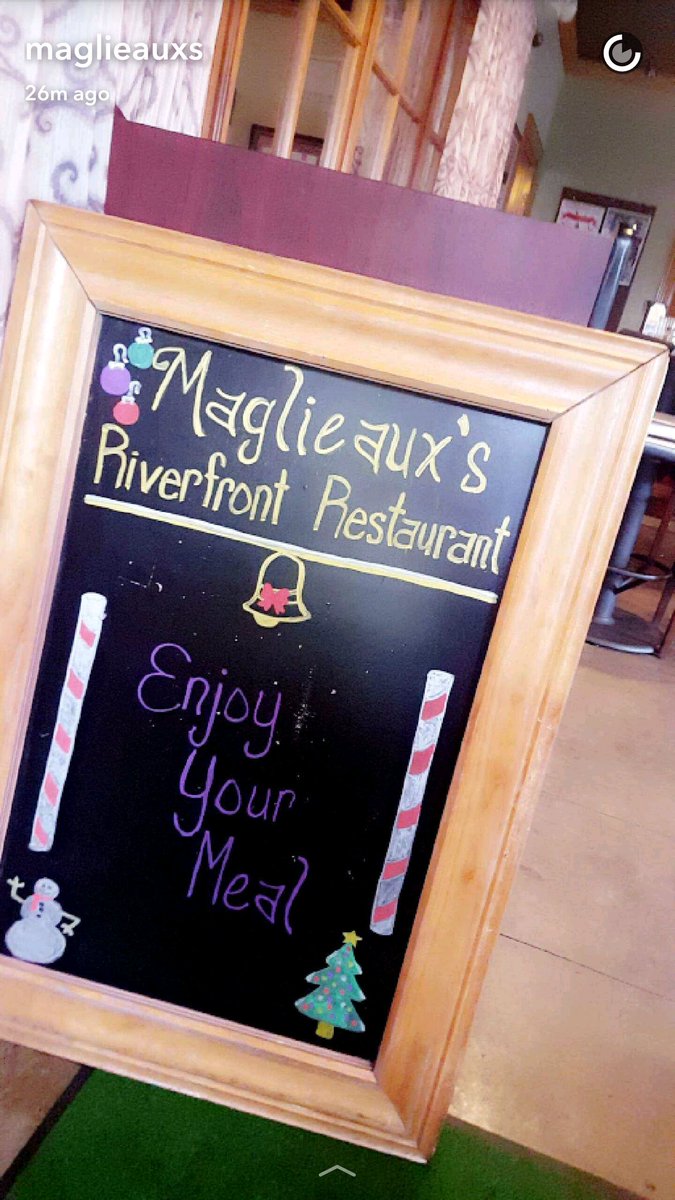 maglieauxs
26m ago
Maglieaux's
Riverfront Restaurant
Enjoy
Your
Meal